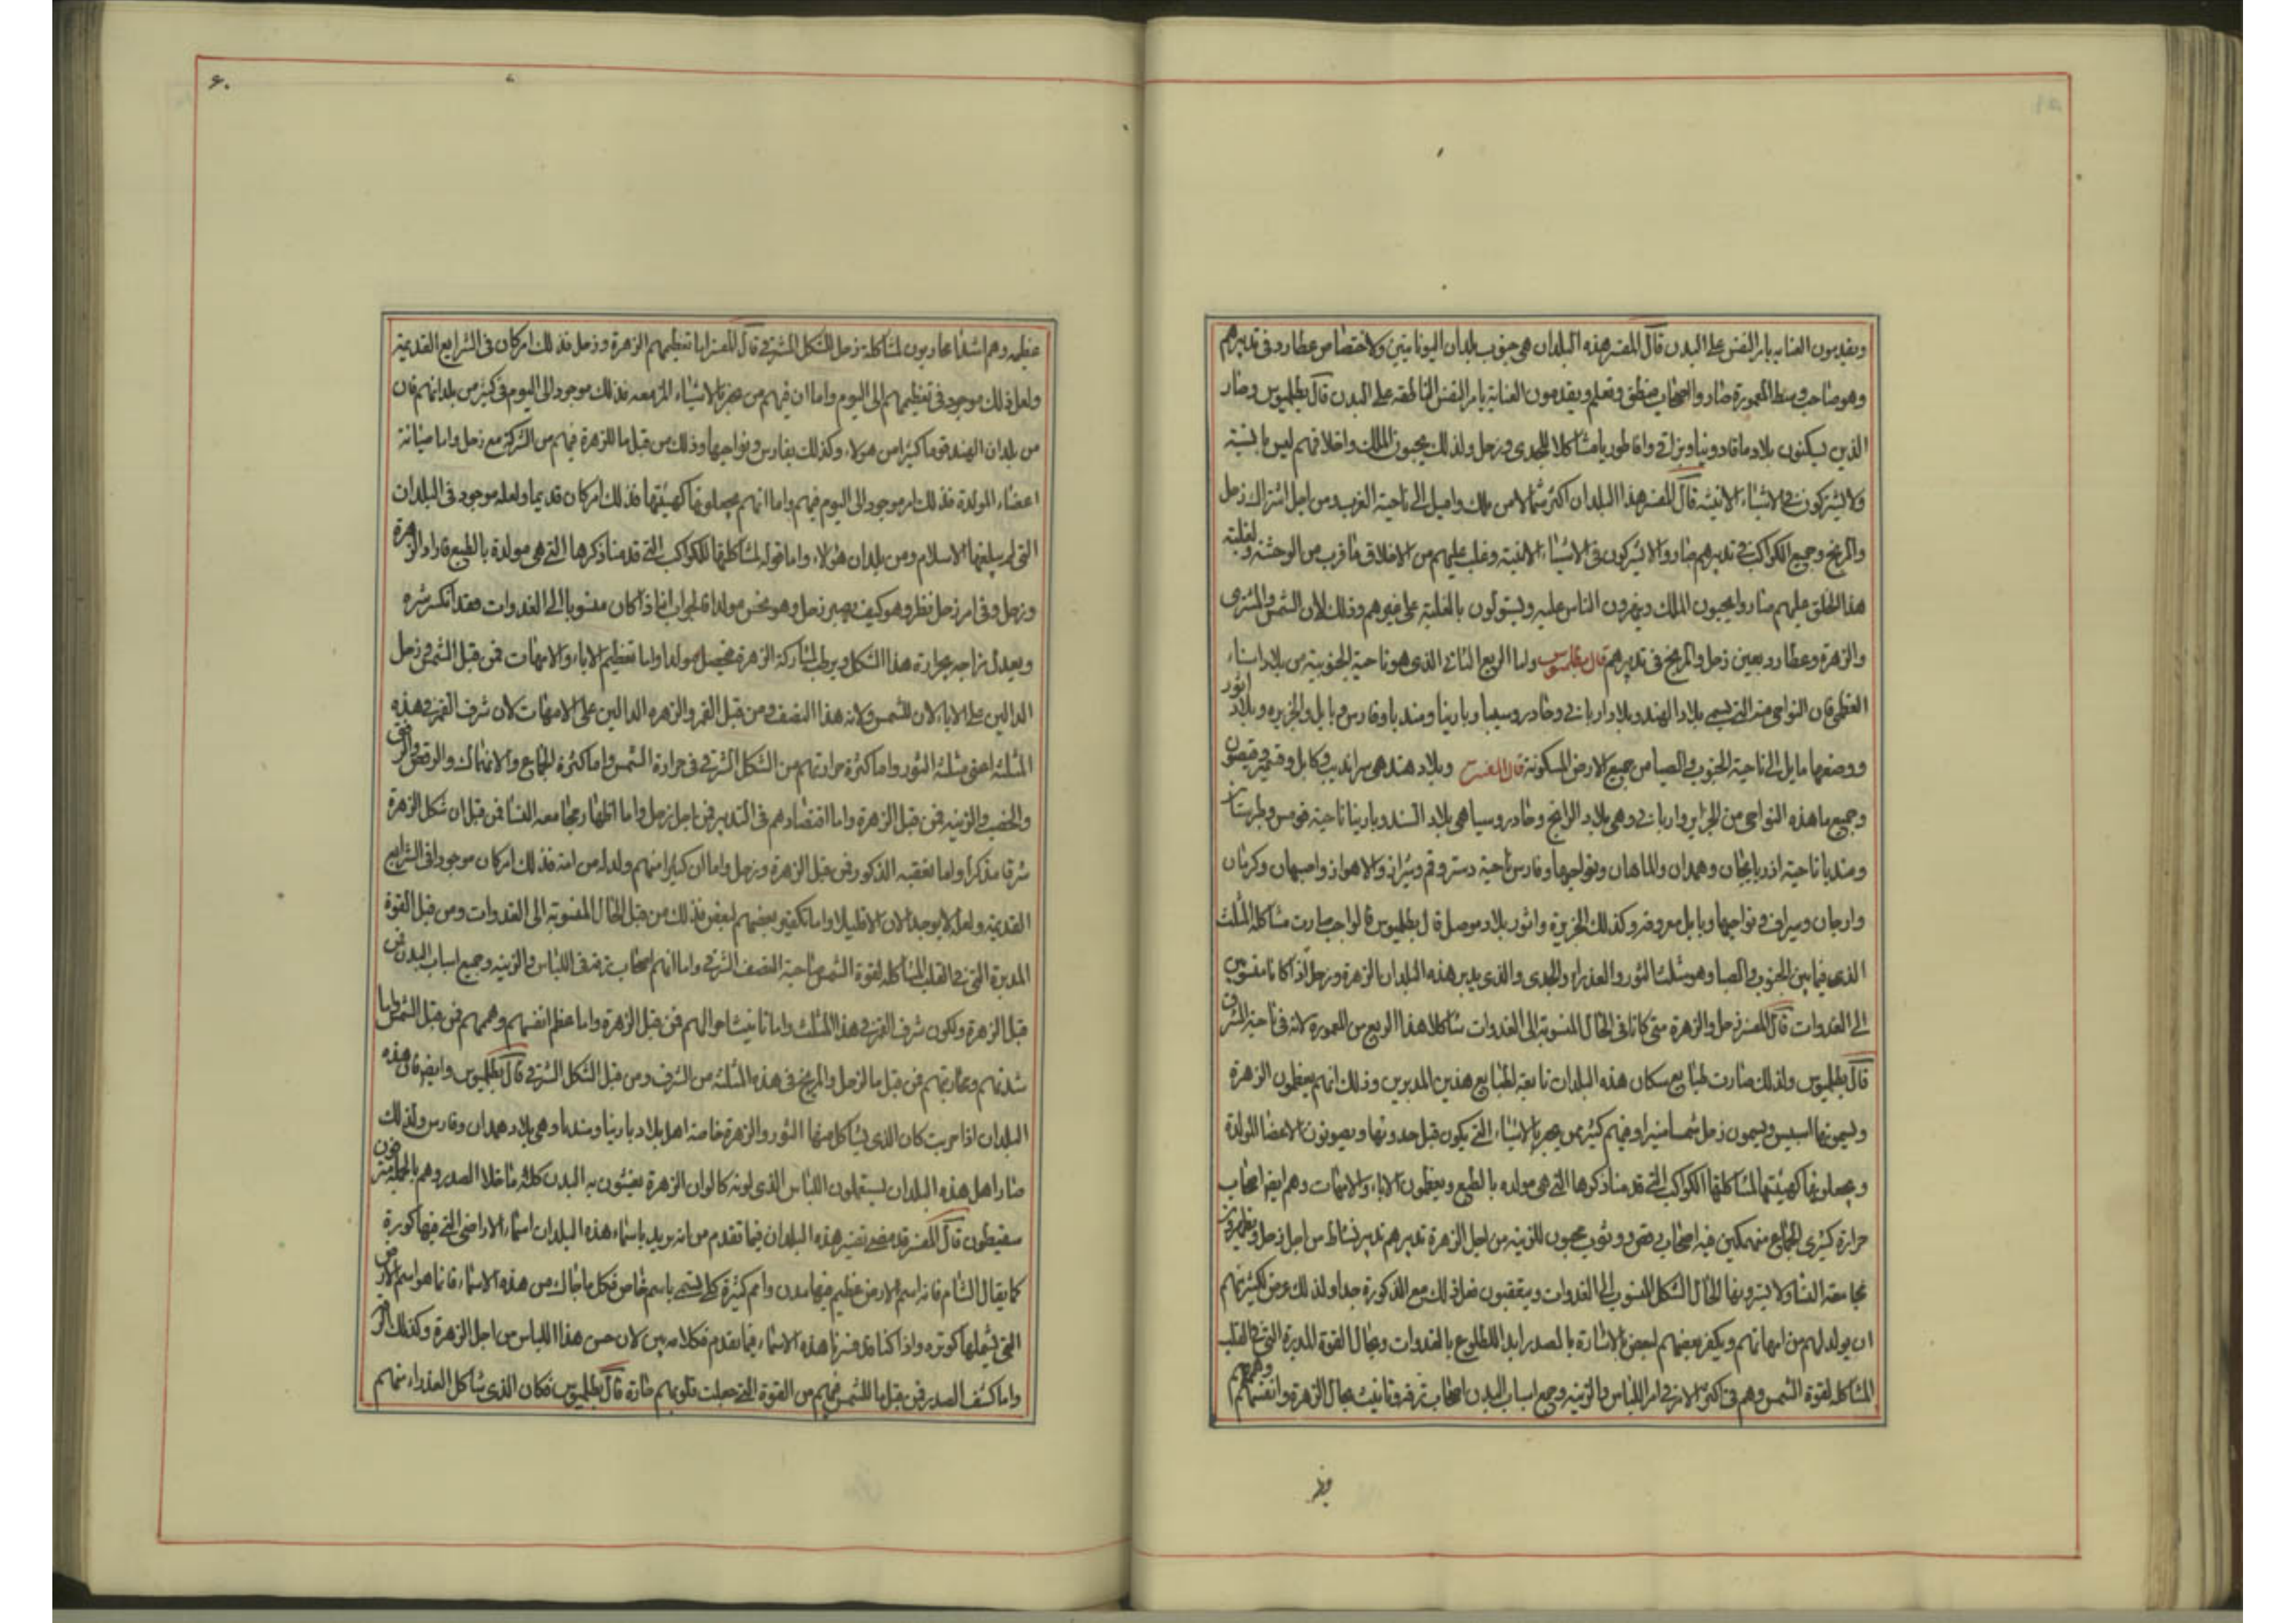 ويقدمون العناية بامر النفس على البدن قال المفسر هذه البلدان هي جنوب بلدان اليونانيين ولاختصاص عطارد في تدبيرهم
وهو صاحب وسط المعمورة صاروا اصحاب منطق وتعلم ويقدمون العناية بامر النفس الناطقة على البدن قال بطلميوس وصار
الذين يسكنون بلاد ماقادونيا وبراقي واقاطوريا مشاكلا للجدي وزحل ولذلك يحبون الملك واخلاقهم ليس بالسنية
ولا يشتركون في الاشياء الانيسة قال المفسر هذا البلدان اكثر شمالا من تلك واميل الى ناحية الغرب ومن اجل اشتراك زحل
والمريخ وجميع الكواكب في تدبيرهم صاروا لا يشركون في الاشياء الانسية وغلب عليهم من الاخلاق ما قرب من الوحشة ولغلبة
هذا الخلق عليهم صاروا يحبون الملك ويقهرون الناس عليه ويستولون بالغلبة على غيرهم وذلك لان الشمس والمشتري
والزهرة وعطارد بعين زحل والمريخ في تدبيرهم قال بطلميوس واما الربع الثاني الذي هو ناحية الجنوبية من بلاد اسياء
العظمى فان النواحي منه التي تسمى بلاد الهند وبلاد اريانى وجادروسيا وبارينا ومنديا وفارس وبابل والجزيره وبلاد اثور
ووضعها مايل الى ناحية الجنوب والصبا من جميع الارض المسكونة قال المفسر وبلاد هند هي سرانديب وكابل وقنوج وقيصون
وجميع ما هذه النواحي من الجزاير واريانى وهي بلاد الزانج وجادروسيا هي بلاد السند وبارينا ناحية قومس وطبرستان
ومنديا ناحية اذربايجان وهمدان والماهان ونواحيها وفارس ناحية دستر وقم وشيراز والاهواز واصبهان وكرمان
وارجان وسيراف ونواحيها وبابل معروفة وكذلك الجزيرة واثور بلاد موصل قال بطلميوس فالواجب صارت مشاكلة المثلث
الذي فيما بين الجنوب والصبا وهو مثلث الثور والعذراء والجدي والذي يدبر هذه البلدان الزهرة وزحل اذا كانا منسوبين
الى الغدوات قال المفسر زحل والزهرة متى كانا في الحال المنسوبة الى الغدوات شاكلا هذا الربع من المعمورة لانه في ناحية الشرق
قال بطلميوس ولذلك صارت طبايع سكان هذه البلدان تابعة لطبايع هذين المدبرين وذلك انهم يعظمون الزهرة
ويسمونها اسيس ويسمون زحل شمسا منيرا وفيهم كثير من يخبر بالاشياء التي يكون قبل حدوثها ويصونون الاعضا المولدة
ويجعلونها كهيئتها لمشاكلتها الكواكب التي قدمنا ذكرها التي هي مولدة بالطبع ويعظمون الاباء والامهات وهم ايضا اصحاب
حرارة كثيري الجماع منهمكين فيه اصحاب رقص ووثوب محبون للزينة من اجل الزهرة تدبيرهم تدبير نشاط من اجل زحل ويظهرون
مجامعة النسا ولا يسترونها لحال الشكل المنسوب الى الغدوات ويعقبون فعل ذلك مع الذكورة جدا ولذلك عرض لكثير منهم
ان يولد لهم من امهاتهم ويكفر بعضهم لبعض بالاشارة بالصدر ابدا للطلوع بالغدوات وبحال القوة المدبرة التي في القلب
المشاكلة لقوة الشمس وهم في اكثر الامر في امر اللباس والزينه وجميع اسباب البدن اصحاب ترفه وتانيث بحال الزهرة وانفسهم وهممهم
٦٠
عظيمه وهم اشدا محاربون لمشاكلة زحل للشكل المشرقي قال المفسر اما تعظيمهم الزهرة وزحل فذلك امر كان في الشرايع القديمة
ولعل ذلك موجود في تعظيمهم الى اليوم واما ان فيهم من يخبر بالاشياء المزمعه فذلك موجود الى اليوم في كثير من بلدانهم فان
من بلدان الهند قوما كثيرا من هولاء وكذلك بفارس ونواحيها وذلك من قبل ما للزهرة فيهم من الشركة مع زحل واما صيانة
اعضاء المولدة فذلك امر موجود الى اليوم فيهم واما انهم يجعلونها كهيئتها فذلك امر كان قديما ولعله موجود في البلدان
التي لم يبلغها الاسلام ومن بلدان هولاء واما قوله لمشاكلتها للكواكب التي قدمنا ذكرها التي هي مولدة بالطبع فاراد الزهرة
وزحل وفي امر زحل نظر وهو كيف يصير زحل وهو نحس مولدا فالجواب انه اذا كان منسوبا الى الغدوات فقد انكسر شره
ويعدل مزاجه بحرارة هذا الشكل ويرطب لمشاركة الزهرة فيحصل مولدا واما تعظيم الاباء والامهات فمن قبل الشمس وزحل
الدالين على الاباء لان للشمس ولاية هذا النصف ومن قبل القمر والزهره الدالين على الامهات لان شرف القمر في هذه
المثلثة اعني مثلثة الثور واما كثرة حرارتهم من الشكل الشرقي في حرارة الشمس واما كثرة الجماع والانهماك والرقص والزفن
والخصب والزينه فمن قبل الزهرة واما اقتصادهم في التدبير فمن اجل زحل واما اظهار مجامعه النسا فمن قبل ان شكل الزهرة
شرقا مذكرا واما تعقبه الذكور فمن قبل الزهرة وزحل واما ان كثيرا منهم ولد له من امه فذلك امر كان موجودا في الشرايع
القديمة ولعله لا يوجد الان الا قليلا واما تكفير بعضهم لبعض فذلك من قبل الحال المنسوبة الى الغدوات ومن قبل القوة
المدبرة التي في القلب المشاكلة لقوة الشمس صاحبة النصف الشرقي واما انهم اصحاب ترفه في اللباس والزينه وجميع اسباب البدن فمن
قبل الزهرة ولكون شرف القمر في هذا المثلث واما تانيث احوالهم فمن قبل الزهرة واما عظم انفسهم وهممهم فمن قبل الشمس واما
شدتهم ومحاربتهم فمن قبل ما لزحل والمريخ في هذه المثلثة من الشرف ومن قبل الشكل الشرقي قال بطلميوس وايضا فان هذه
البلدان اذا جربت كان الذي يشاكل منها الثور والزهرة خاصة اهل بلاد بارينا ومنديا وهي بلاد همدان وفارس ولذلك
صار اهل هذه البلدان يستعملون اللباس الذي لونه كالوان الزهرة يغشون به البدن كله ما خلا الصدر وهم بالجملة مترفهون
سقيطون قال المفسر قد مضى تفسير هذه البلدان فيما تقدم من انه يريد باسماء هذه البلدان اسماء الاراضي التي فيها كورة
كما يقال الشام فانه اسم لارض عظيم فيها مدن وامم كثيرة كل يسمى باسم خاص فكل ما جاك من هذه الاسماء فانما هو اسم الارض
التي يشملها كورته واذا كنا قد فسرنا هذه الاسماء فيما تقدم فكلامه بين لان حسن هذا اللباس من اجل الزهرة وكذلك
واما كشف الصدر فمن قبل ما للشمس فيهم من القوة التي جعلت قلوبهم حارة قال بطلميوس فكان الذي شاكل العذراء منهم